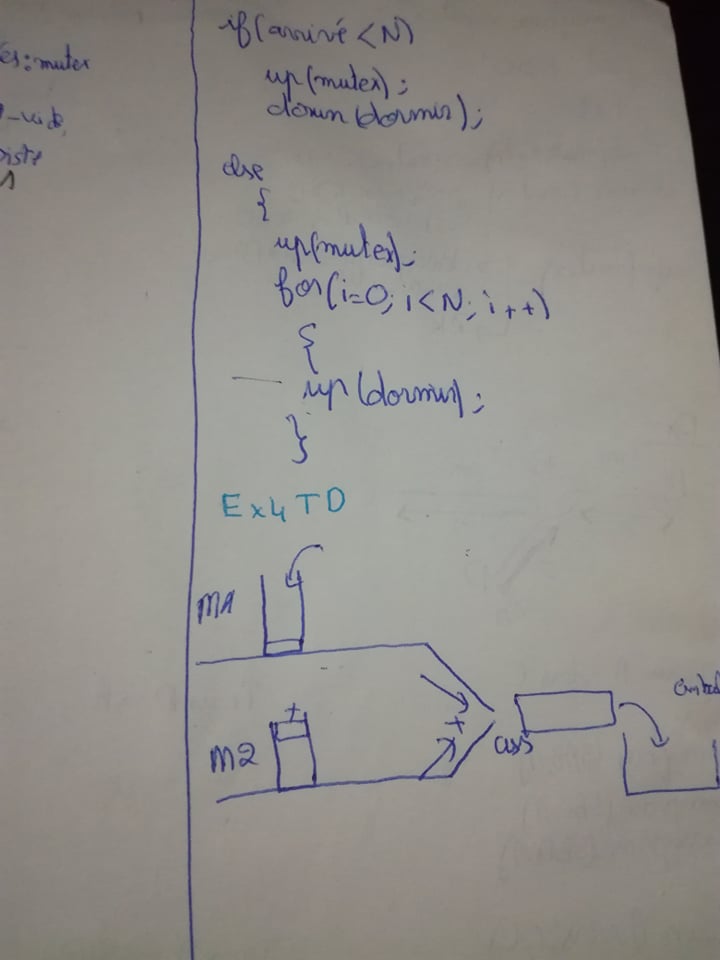 és: mutex
if(arrivé < N)
up(mutex);
down(dormir);
else
{
up(mutex);
for(i=0; i<N; i++)
{
up(dormir);
}
Ex4 TD
M1
M2
ass